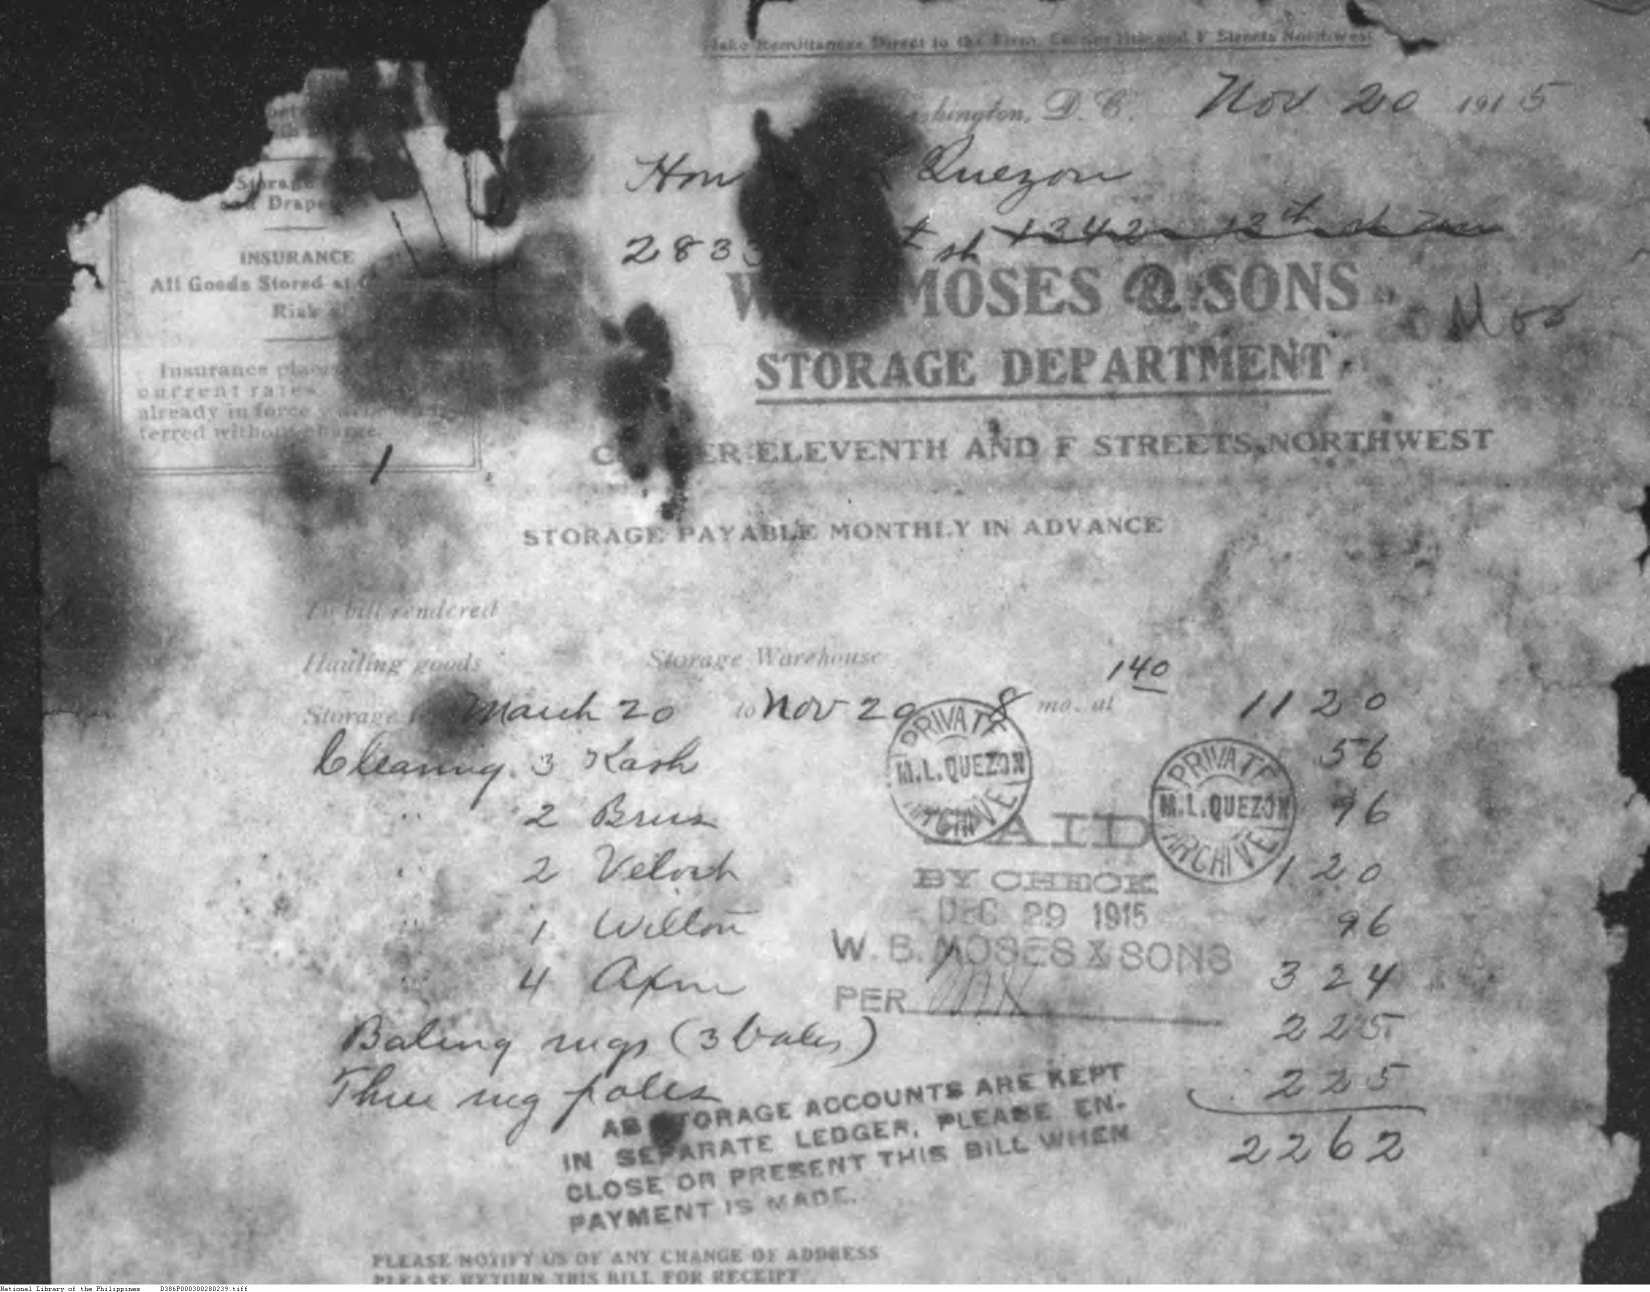 Make Remittances Direct to the Firm, Corner 11th and F Streets Northwest
Washington, D. C. Nov 20 1915
Hon Quezon
2833 st 1342 12th st
W. MOSES & SONS
STORAGE DEPARTMENT
CORNER ELEVENTH AND F STREETS, NORTHWEST
STORAGE PAYABLE MONTHLY IN ADVANCE
Storage
and Drape
INSURANCE
All Goods Stored at
Risk
Insurance placed
current rates
already in force
ferred without charge.
To bill rendered
Hauling goods Storage Warehouse
Storage March 20 to Nov 20 8 mo. at 140 11 20
Cleaning 3 Kash 56
" 2 Brus 96
" 2 Velvet 1 20
" 1 Wilton 96
" 4 Axm 3 24
Baling rugs (3 bales) 2 25
Three rug poles 2 25
22 62
PRIVATE
M.L.QUEZON
ARCHIVE
PRIVATE
M.L.QUEZON
ARCHIVE
PAID
BY CHECK
DEC 29 1915
W. B. MOSES & SONS
PER
AS STORAGE ACCOUNTS ARE KEPT
IN SEPARATE LEDGER, PLEASE EN-
CLOSE OR PRESENT THIS BILL WHEN
PAYMENT IS MADE.
PLEASE NOTIFY US OF ANY CHANGE OF ADDRESS
PLEASE RETURN THIS BILL FOR RECEIPT
National Library of the Philippines D386P000300280239.tiff